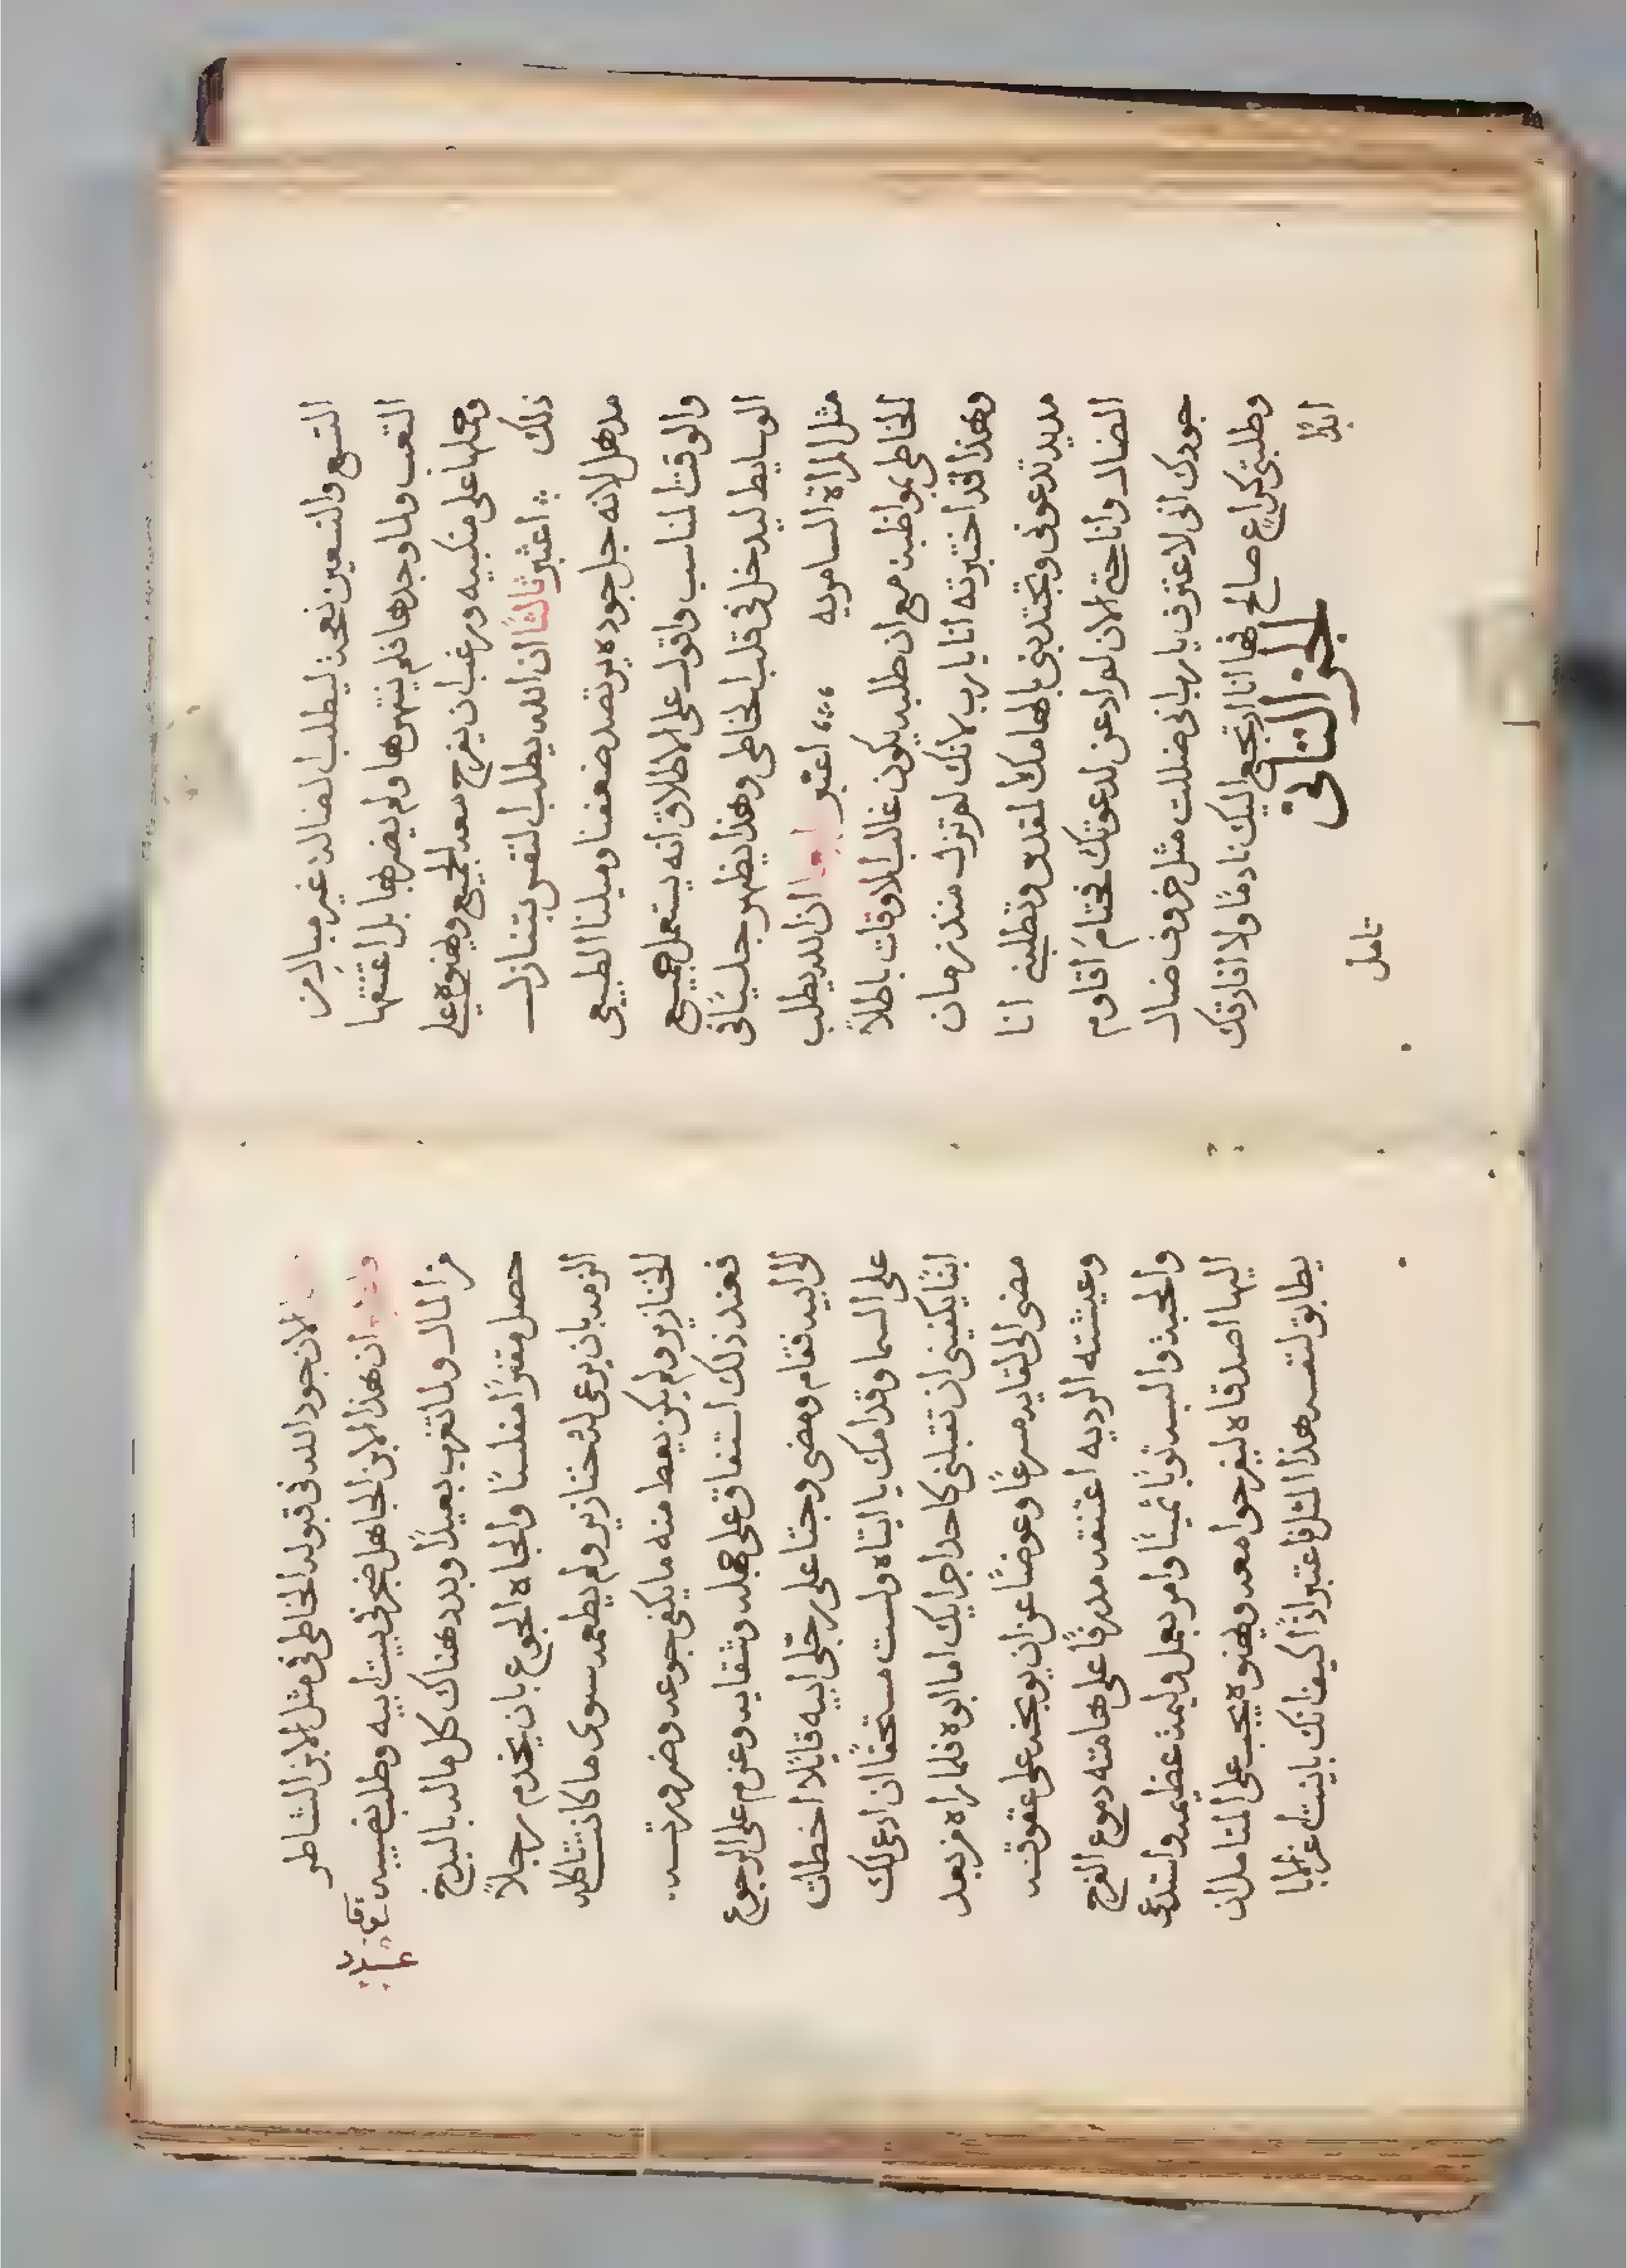 التسع والتسعين نعجة ليطلب الضاله غير مبالٍ من
التعب ولما وجدها فلم ينتهرها ولم يضربها بل اعتنقها
وحملها على منكبيه ورغب ان يفرح معه الجميع ويهنوه على
ذلك ؞ اعتبر ثالثًا ان الله يطلب النفس بتنازل
مدهل لانه جل جوده يرتصد ضعفنا وميلنا الطبيعي
والوقت المناسب واقول على الاطلاق انه يستعمل جميع
الوسايط ليدخل في قلب الخاطي وهذا يظهر جليًا في
مثل المراة السامريه ؞ اعتبر رابعا ان الله يطلب
الخاطي بمواظبة مع ان طلبه يكون غالب الاوقات باطلاً
وهذا قد اختبرته انا يارب لانك لم تزل منذ زمان
مديد تدعوني وتجتدبني بالهامك المقدس وتطلبني انا
الضال وانا حتى الان لم ارد عن لدعوتك فحتامَ اقاوم
جودك اني لاعترف يارب اني ضللت مثل خروف ضال
وطلبتني كراعٍ صالح فها انا ارتجع اليك نادمًا ولا افارقك
ابدًا
الجز الثاني
تامل
لان جود الله في قبوله الخاطي في مثل الابن الشاطر
ان هذا الابن الجاهل ضجر في بيت ابيه وطلب نصيبه
من المال ولما تغرب بعيدًا وبدد هناك كل ماله بالبدخ
حصل مفترًا مفلسًا والجاه الجوع بان يخدم رجلاً
الزمه بان يرعى له خنازير ولم يطعمه سوى ما كانت تاكله
الخنازير ولم يكن يعط منه ما يكفي جوعه وضرورته.
فعند ذلك استفاق على جهله وشقايه وعزم على الرجوع
الى ابيه فقام ومضى وجثا على رجلي ابيه قايلًا اخطات
على السما وقدامك يا ابتاه ولست مستحقًا ان ادعى لك
ابنًا يكفيني ان تقبلني كاحد اجرايك اما ابوه فلما راه من بعد
مضى الى لقايه مسرعًا وعوضًا عن ان يوبخه على عقوقه
وعيشته الرديه اعتنقه مدرفًا على هامته دموع الفرح
والمحبة والبسه ثوبًا ثمينًا وامر بعمل وليمة عظيمه واستدعى
اليها اصدقاه ليفرحوا معه ويهنوه يجب على المتامل ان
يطابق لنفسه هذا المثل فاعتبر اذًا كيف انك يانيت اغرابا